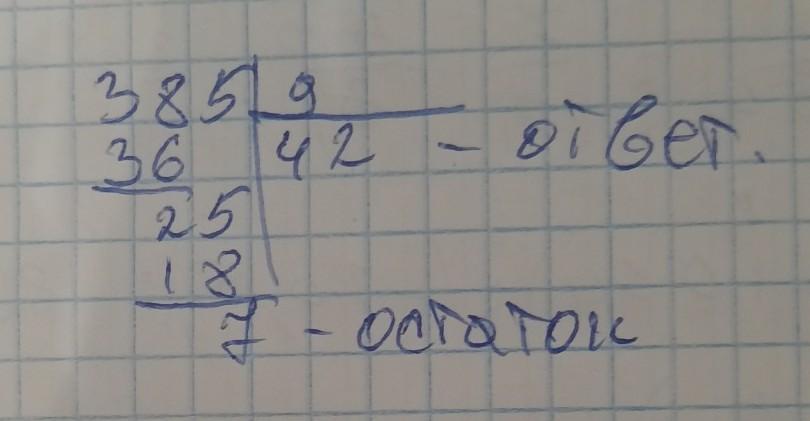 385 9
36 42 - ответ.
25
18
7 - остаток